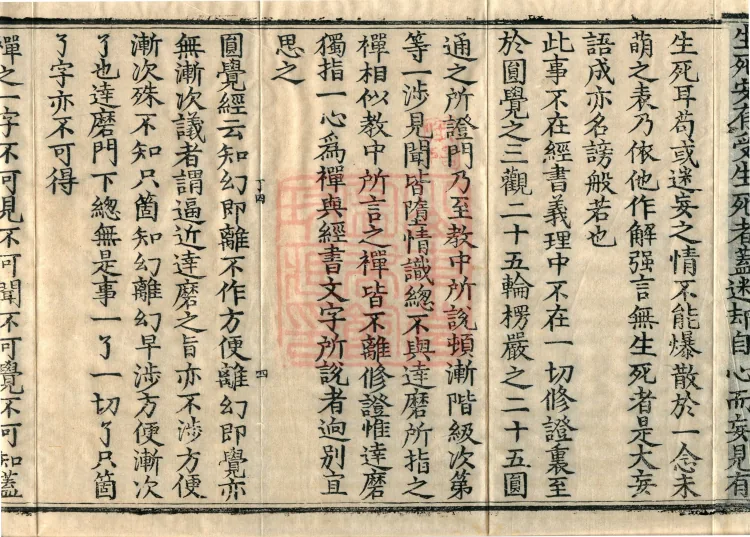 生死妄自受生死者蓋迷却自心而妄見有
生死耳苟或迷妄之情不能爆散於一念未
萌之表乃依他作解强言無生死者是大妄
語成亦名謗般若也
此事不在經書義理中不在一切修證裏至
於圓覺之三觀二十五輪楞嚴之二十五圓
通之所證門乃至教中所說頓漸階級次第
等一涉見聞皆墮情識總不與達磨所指之
禪相似教中所言之禪皆不離修證惟達磨
獨指一心爲禪與經書文字所說者逈別宜
思之
丁四
四
圓覺經云知幻即離不作方便離幻即覺亦
無漸次議者謂逼近達磨之旨亦不涉方便
漸次殊不知只箇知幻離幻早涉方便漸次
了也達磨門下總無是事一了一切了只箇
了字亦不可得
禪之一字不可見不可聞不可覺不可知蓋